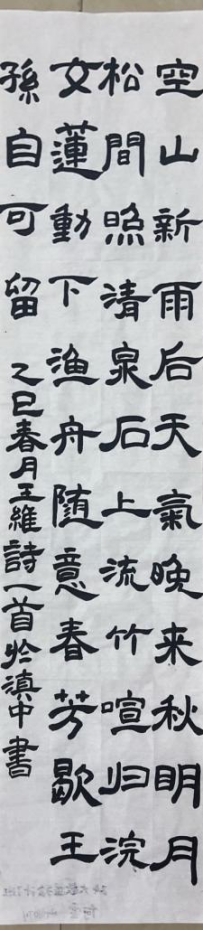 空山新雨后天氣晚来秋明月
松間照清泉石上流竹喧归浣
女蓮動下渔舟随意春芳歇王
孫自可留
乙巳春月王維詩一首於滇中書